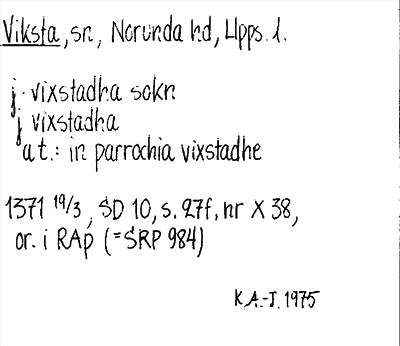 Viksta, sn, Norunda hd, Upps. l.
j vixstadha sokn
j vixstadha
a t.: in parrochia vixstadhe
1371 19/3, SD 10, s. 27f, nr X 38,
or. i RAp (=SRP 984)
K.A.-J. 1975